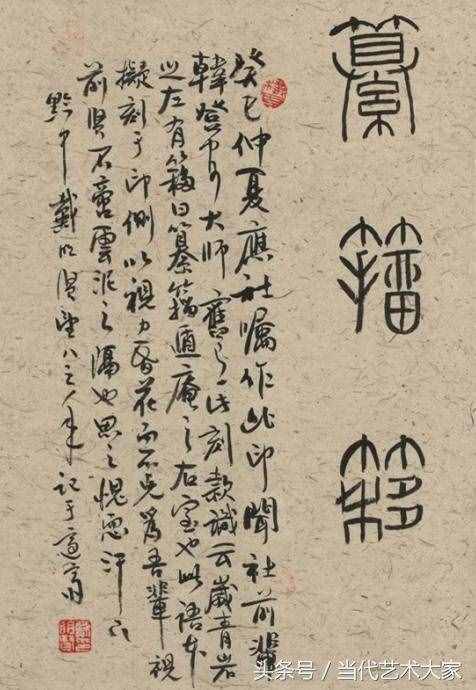 纂籀簃
癸巳仲夏應社囑作此印聞社前輩
韓登安大師舊有此刻款識云歲青岩
之左有簃曰纂籀遁庵之右室也此語本
擬刻于印側以視力昏花而不克爲吾輩視
前賢不啻雲泥之隔也思之愧恧汗下
黔中戴明賢望八之年記于適齋
头条号 / 当代艺术大家